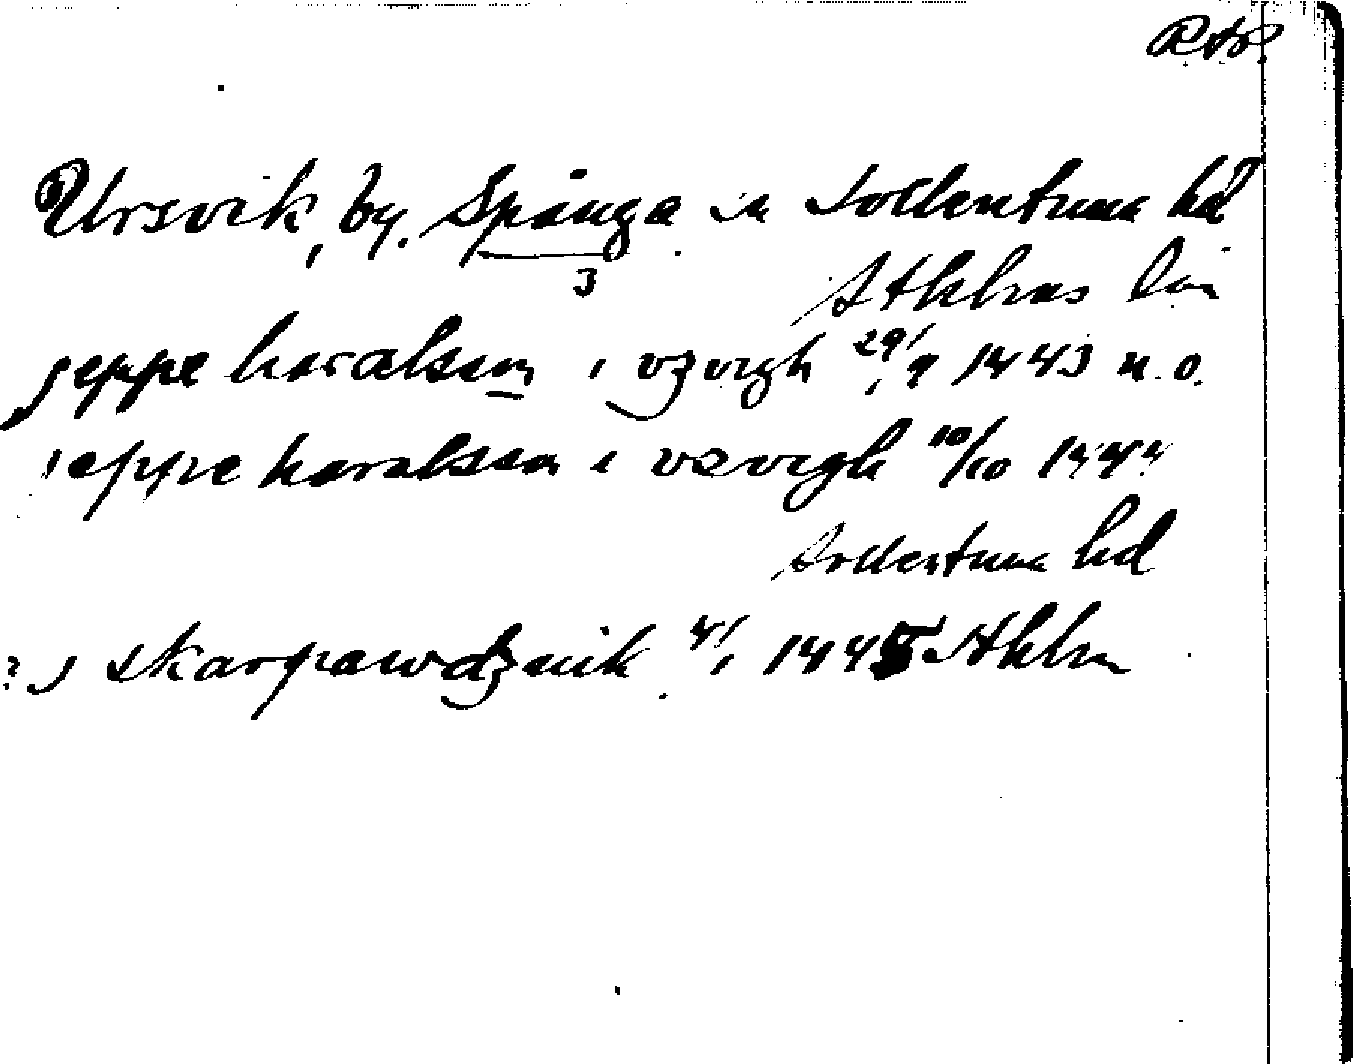 RAP.
Ursvik, by. Spånga sn Sollentuna hd
3
Sthlms län
jeppe haralsson i vzvigh 29/9 1443 n.o.
jeppe haralsson i vzvigh 10/10 1444
Sollentuna hd
? J skarpawdzuik 4/1 1445 Sthlm